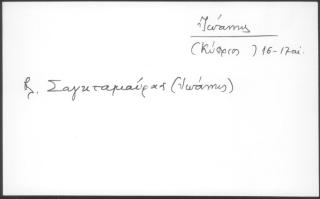 Ἰωάννης
(Κύπριος ) 16-17 αἰ.
βλ. Σαγκταμαύρας (Ἰωάννης)